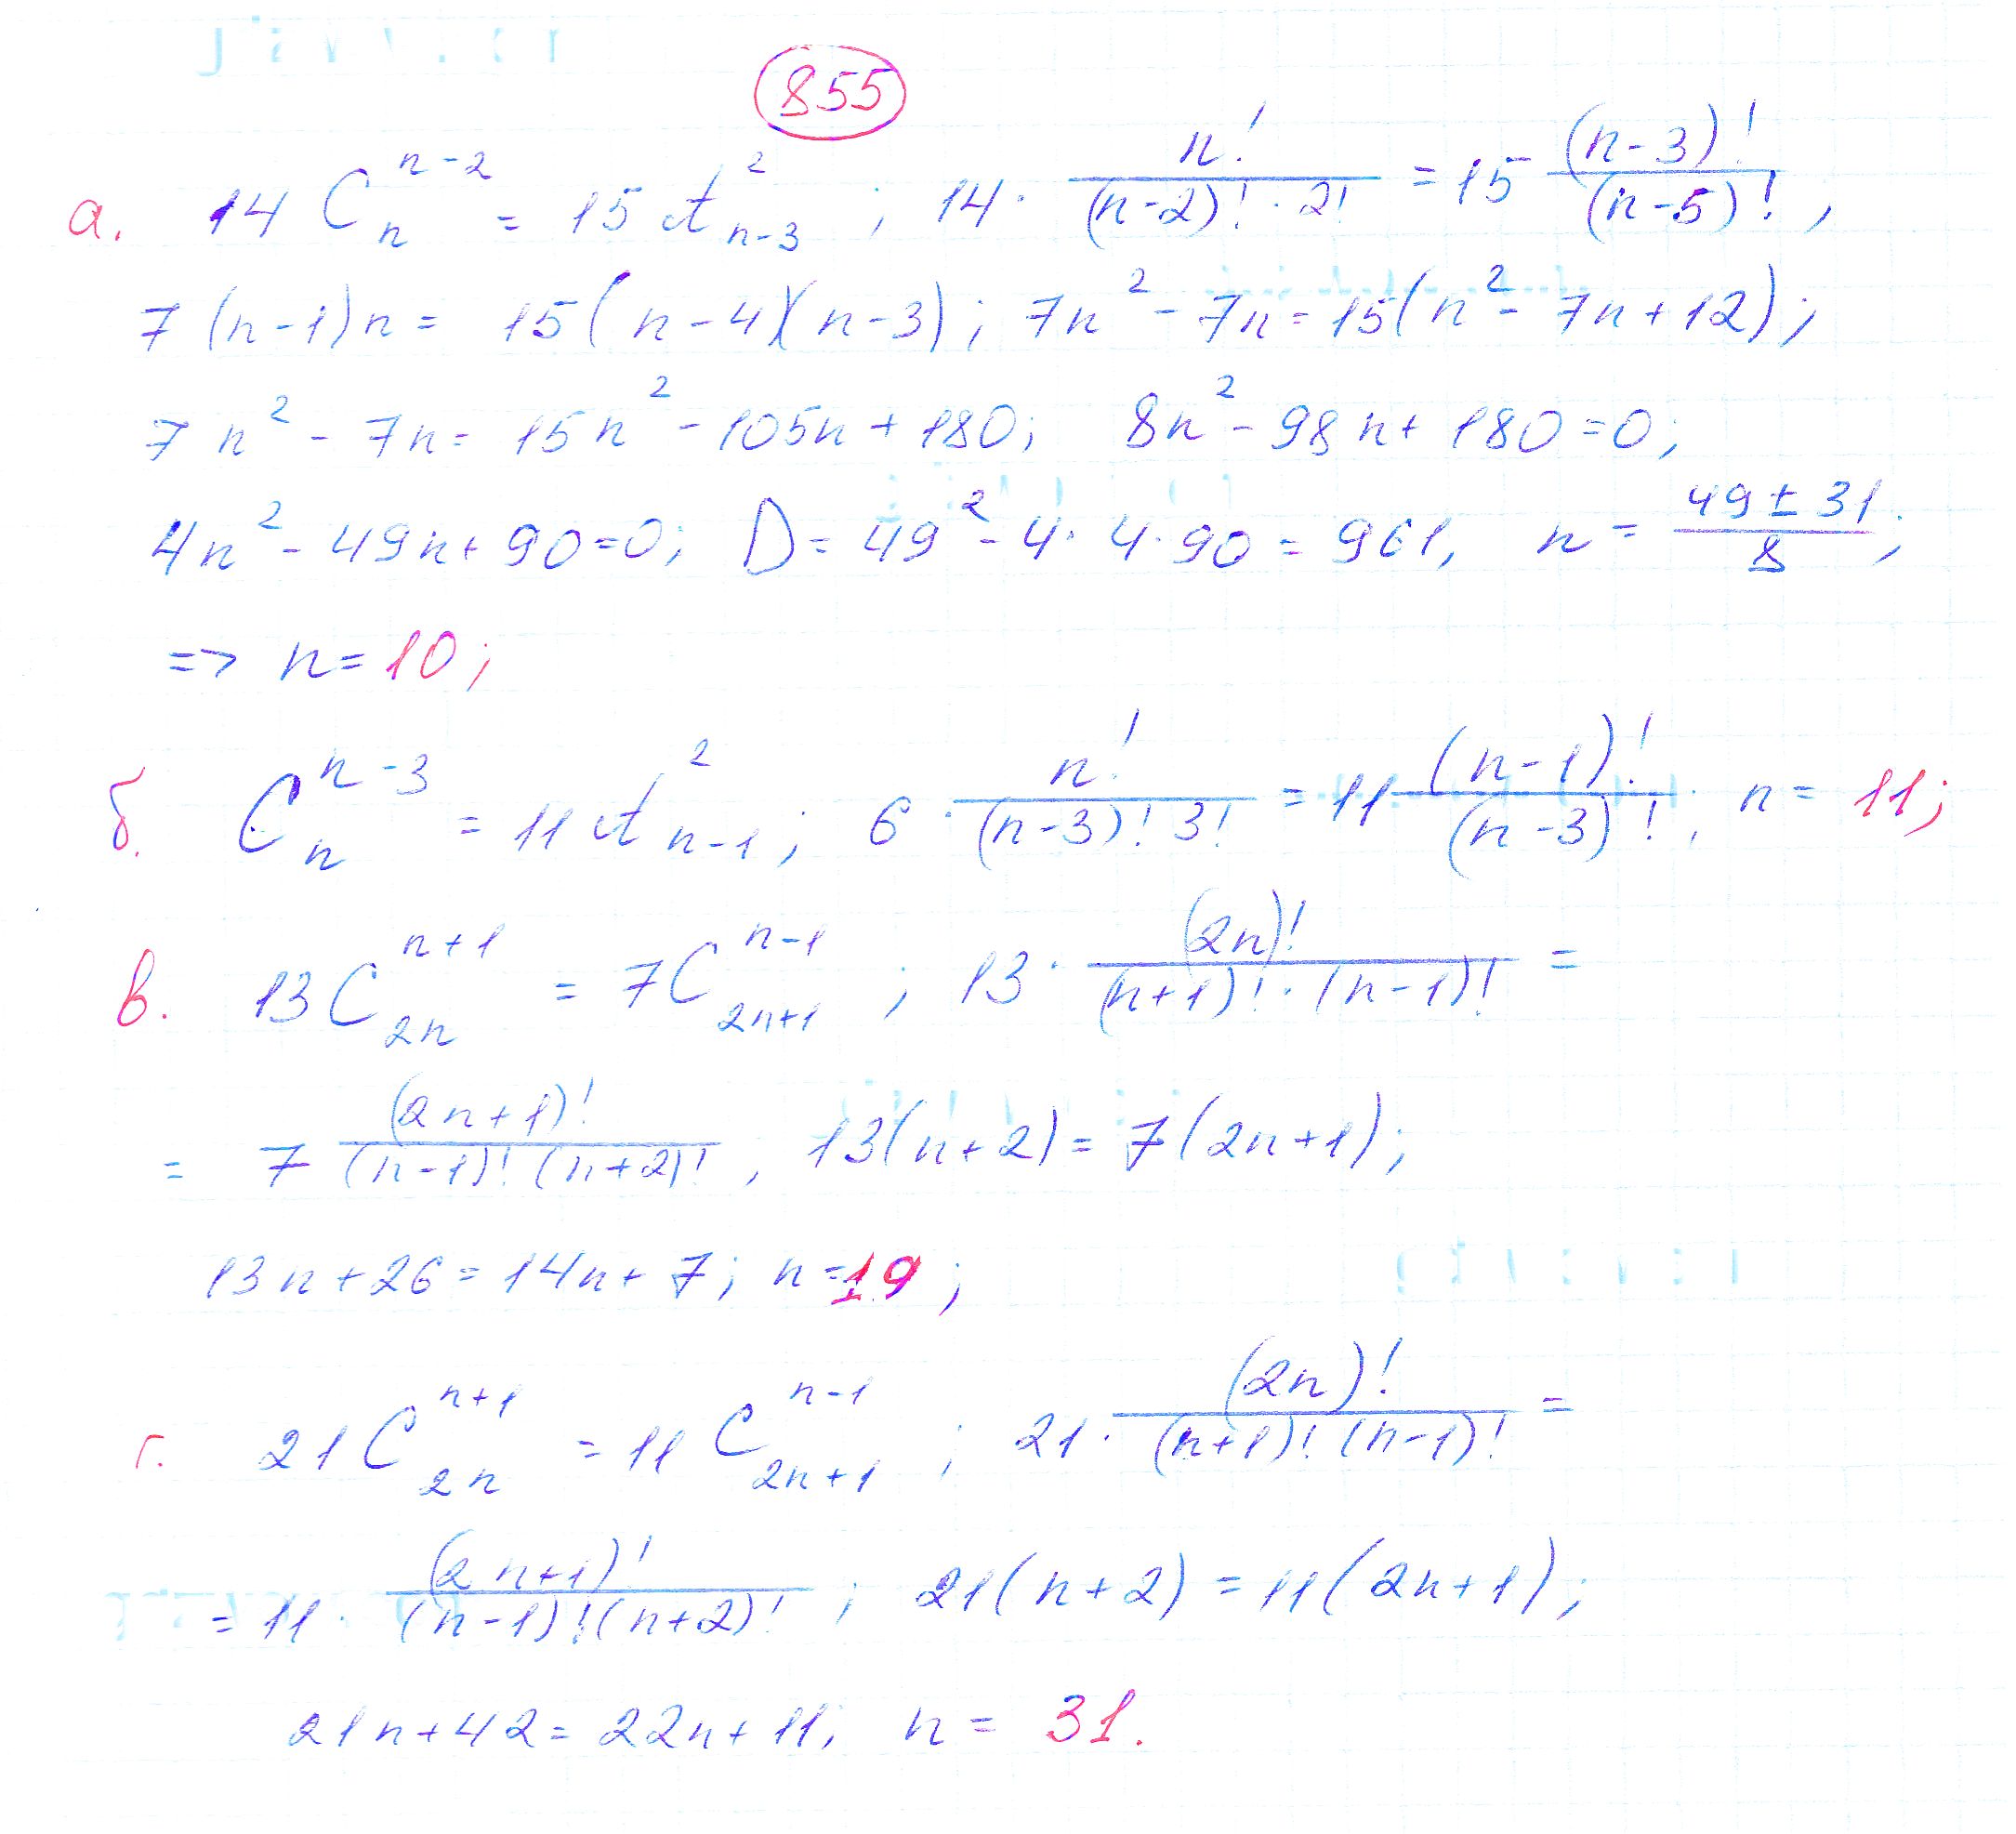 855
а. 14 C_n^{n-2} = 15 A_{n-3}^2 ; 14 · n! / ((n-2)! · 2!) = 15 (n-3)! / (n-5)! ,
7 (n-1) n = 15 (n-4)(n-3) ; 7n² - 7n = 15(n² - 7n + 12) ;
7n² - 7n = 15n² - 105n + 180 ; 8n² - 98n + 180 = 0 ;
4n² - 49n + 90 = 0 ; D = 49² - 4 · 4 · 90 = 961 , n = (49 ± 31) / 8 ;
=> n = 10 ;
б. C_n^{n-3} = 11 A_{n-1}^2 ; 6 · n! / ((n-3)! 3!) = 11 (n-1)! / (n-3)! ; n = 11 ;
в. 13 C_{2n}^{n+1} = 7 C_{2n+1}^{n-1} ; 13 · (2n)! / ((n+1)! · (n-1)!) =
= 7 (2n+1)! / ((n-1)! (n+2)!) , 13(n+2) = 7(2n+1) ;
13n + 26 = 14n + 7 ; n = 19 ;
г. 21 C_{2n}^{n+1} = 11 C_{2n+1}^{n-1} ; 21 · (2n)! / ((n+1)! (n-1)!) =
= 11 · (2n+1)! / ((n-1)! (n+2)!) ; 21(n+2) = 11(2n+1) ;
21n + 42 = 22n + 11 ; n = 31 .